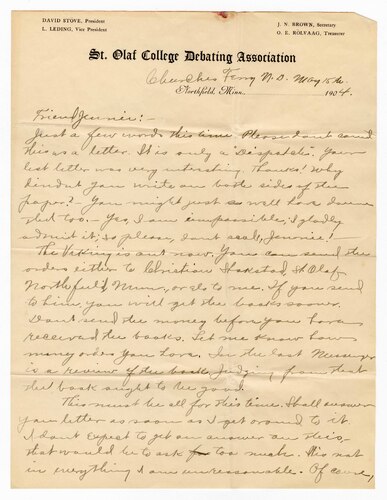 DAVID STOVE, President
L. LEDING, Vice President
J. N. BROWN, Secretary
O. E. ROLVAAG, Treasurer
St. Olaf College Debating Association
Churches Ferry N.D. May 15th
Northfield, Minn., 1904.
Friend Jennie:-
Just a few words this time Please dont count
this as a letter. It is only a "Dispatch". Your
last letter was very interesting. Thanks! Why
didnt you write on both sides of the
paper? You might just as well have done
that too. Yes, I am impossible, I gladly
admit it, so please, dont scold, Jennie!
The Viking is out now. You can send the
orders either to Christian, St. Olaf
Northfield Minn, or els to me. If you send
to him, you will get the books sooner.
Dont send the money before you have
received the books. Let me know how
many orders you have. In the last Messenger
is a review of the book. Judging from that
the book ought to be good.
This must be all for this time. Shall answer
your letter as soon as I get around to it.
I dont expect to get an answer on this,
that would be to ask for too much. Tis not
in everything I am unreasonable. Of course,